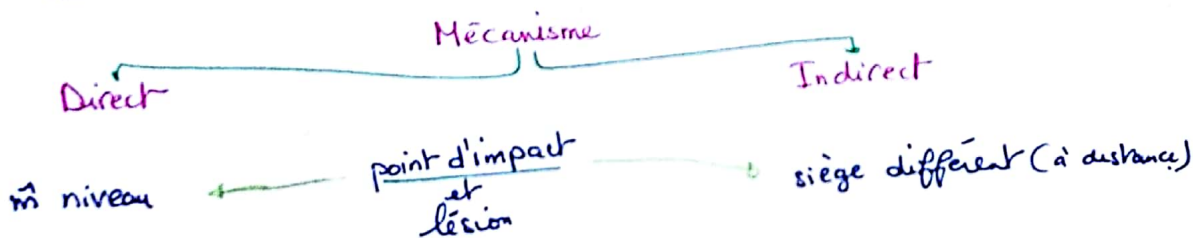 Mécanisme
Direct
Indirect
m̂ niveau
point d'impact
et
lésion
siège différent (à distance)